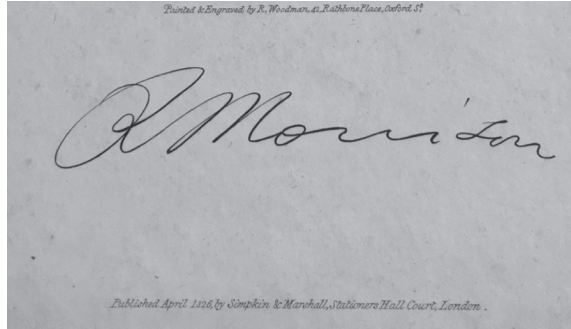 Painted & Engraved by R. Woodman, 42, Rathbone Place, Oxford St.
R Morrison
Published April 1826, by Simpkin & Marshall, Stationers Hall Court, London.